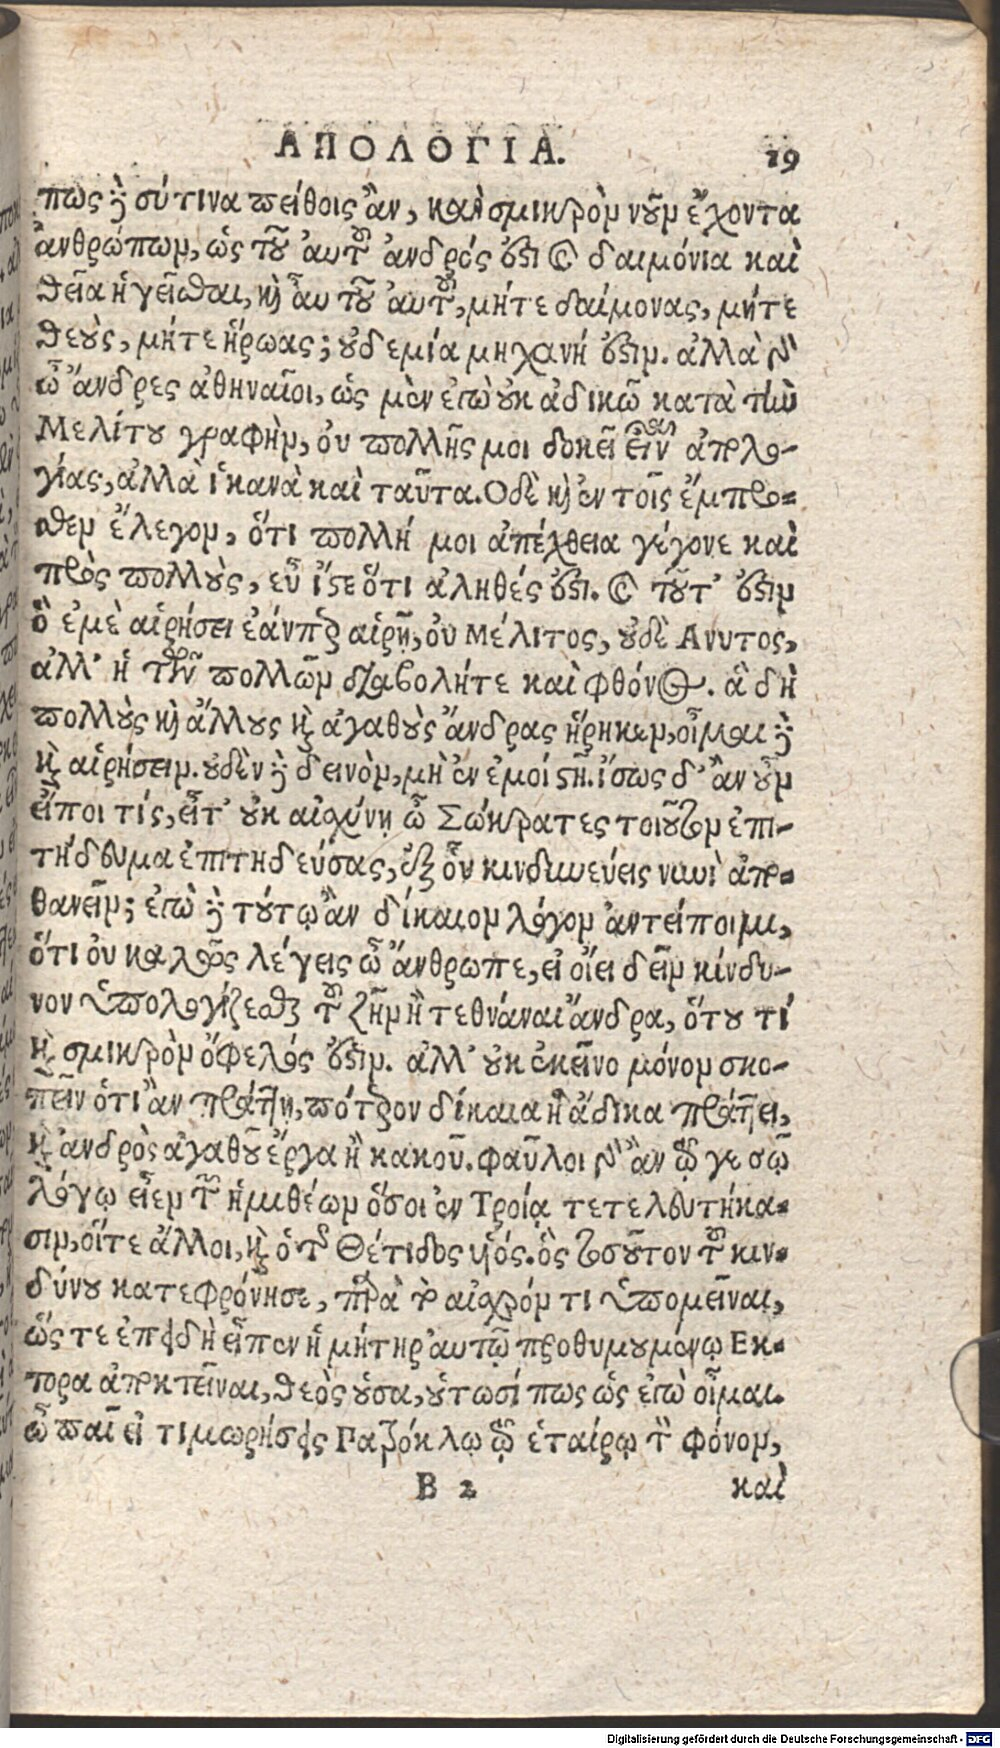 ΑΠΟΛΟΓΙΑ. 19
πως δὲ σύ τινα πείθοις ἂν, καὶ σμικρὸν νοῦν ἔχοντα
ἀνθρώπων, ὡς τοῦ αὐτοῦ ἀνδρός ἐστι καὶ δαιμόνια καὶ
θεῖα ἡγεῖσθαι, καὶ αὖ τοῦ αὐτοῦ, μήτε δαίμονας, μήτε
θεοὺς, μήτε ἥρωας; οὐδεμία μηχανή ἐστιν. ἀλλὰ γὰρ
ὦ ἄνδρες ἀθηναῖοι, ὡς μὲν ἐγὼ οὐκ ἀδικῶ κατὰ τὴν
Μελίτου γραφὴν, οὐ πολλῆς μοι δοκεῖ εἶναι ἀπολο-
γίας, ἀλλὰ ἱκανὰ καὶ ταῦτα. Ὃ δὲ καὶ ἐν τοῖς ἔμπρο-
σθεν ἔλεγον, ὅτι πολλή μοι ἀπέχθεια γέγονε καὶ
πρὸς πολλοὺς, εὖ ἴστε ὅτι ἀληθές ἐστι. καὶ τοῦτ' ἐστιν
ὃ ἐμὲ αἱρήσει ἐάνπερ αἱρῇ, οὐ Μέλιτος, οὐδὲ Ανυτος,
ἀλλ' ἡ τῶν πολλῶν διαβολήτε καὶ φθόνος. ἃ δὴ
πολλοὺς καὶ ἄλλους καὶ ἀγαθοὺς ἄνδρας ᾕρηκεν, οἶμαι δὲ
καὶ αἱρήσειν. οὐδὲν δὲ δεινὸν, μὴ ἐν ἐμοί στῇ. ἴσως δ' ἂν οὖν
εἴποι τίς, εἶτ' οὐκ αἰσχύνῃ ὦ Σώκρατες τοιοῦτον ἐπι-
τήδευμα ἐπιτηδεύσας, ἐξ οὗ κινδυνεύεις νυνὶ ἀπο-
θανεῖν; ἐγὼ δὲ τούτῳ ἂν δίκαιον λόγον ἀντείποιμι,
ὅτι οὐ καλῶς λέγεις ὦ ἄνθρωπε, εἰ οἴει δεῖν κίνδυ-
νον ὑπολογίζεσθαι τοῦ ζῆν ἢ τεθνάναι ἄνδρα, ὅτου τί
καὶ σμικρὸν ὄφελός ἐστιν. ἀλλ' οὐκ ἐκεῖνο μόνον σκο-
πεῖν ὅτι ἂν πράττῃ, πότερον δίκαια ἢ ἄδικα πράττει,
καὶ ἀνδρὸς ἀγαθοῦ ἔργα ἢ κακοῦ. φαῦλοι γὰρ ἂν τῷ γε σῷ
λόγῳ εἶεν τῶν ἡμιθέων ὅσοι ἐν Τροίᾳ τετελευτήκα-
σιν, οἵτε ἄλλοι, καὶ ὁ τῆς Θέτιδος υἱός. ὃς τοσοῦτον τοῦ κιν-
δύνου κατεφρόνησε, παρὰ τὸ αἰσχρόν τι ὑπομεῖναι,
ὥς τε ἐπειδὴ εἶπεν ἡ μήτηρ αὐτῷ προθυμουμένῳ Εκ-
τορα ἀποκτεῖναι, θεὸς οὖσα, οὑτωσί πως ὡς ἐγὼ οἶμαι.
ὦ παῖ εἰ τιμωρήσεις Παβόκλῳ τῷ ἑταίρῳ τὸν φόνον,
B 2 καὶ
Digitalisierung gefördert durch die Deutsche Forschungsgemeinschaft - DFG